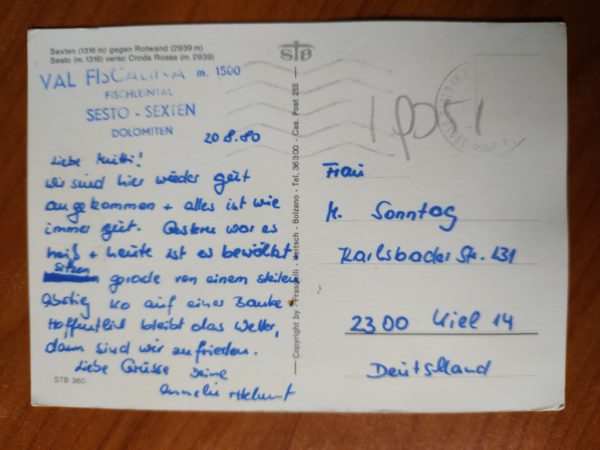 Sexten (1316 m) gegen Rotwand (2939 m)
Sesto (m. 1316) verso Croda Rossa (m. 2939)
VAL FISCALINA m. 1500
FISCHLEINTAL
SESTO - SEXTEN
DOLOMITEN
20.8.80
Liebe Mutti!
wir sind hier wieder gut
angekommen + alles ist wie
immer gut. Gestern war es
heiß + heute ist es bewölkt.
Sitzen
gerade von einem steilen
Abstieg ko auf einer Banke.
Hoffentlich bleibt das Wetter,
dann sind wir zufrieden.
Liebe Grüsse Deine
Annelie + Helmut
STB 360
Copyright by Frasnelli - Keitsch - Bolzano - Tel. 36300 - Cas. Post 255
STB
Frau
Sonntag
Karlsbader Str. 131
2300 Kiel 14
Deutschland